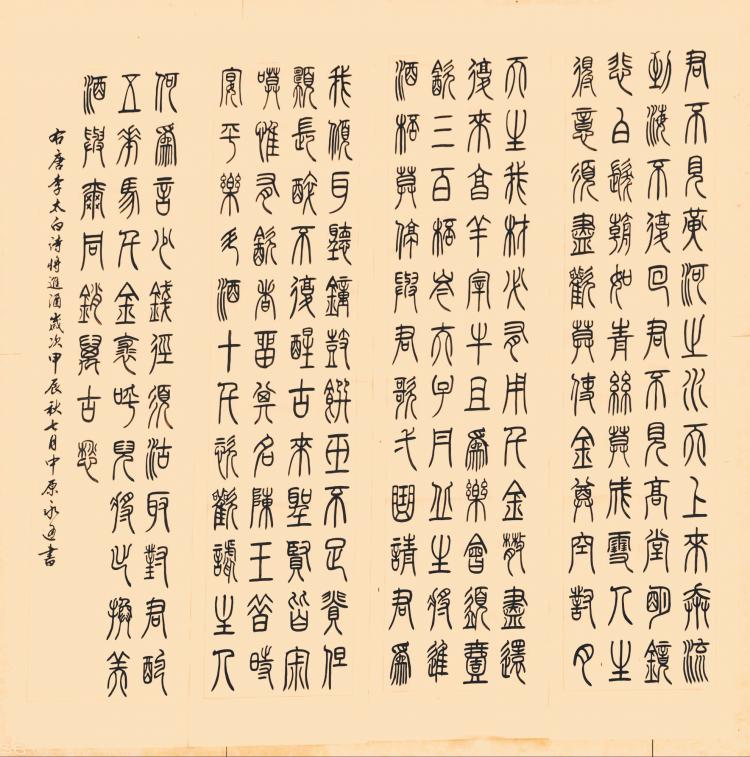 君不見黃河之水天上來奔流
到海不復回君不見高堂明鏡
悲白髮朝如青絲莫成雪人生
得意須盡歡莫使金尊空對月
天生我材必有用千金散盡還
復來亯羊宰牛且爲樂會須壹
飲三百桮岑夫子丹丘生將進
酒桮莫停與君歌弌曲請君爲
我傾耳聽鐘鼓饌玉不足貴但
願長醉不復醒古來聖賢皆宋
嗼惟有飲者留其名陳王昔時
宴平樂斗酒十千恣歡謔主人
何爲言少錢徑須沽取對君酌
五花馬千金裘呼兒將出換美
酒與爾同銷萬古愁
右唐李太白詩將進酒歲次甲辰秋七月中原永書